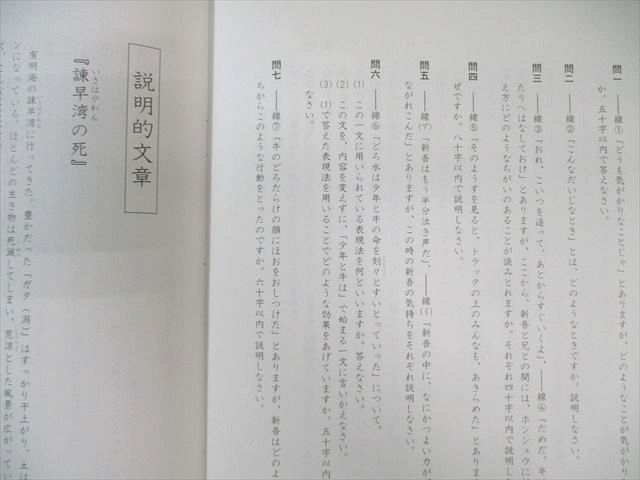 問一 ――線①「どうも気がかりなことじゃ」とありますが、どのようなことが気がかりな
か。五十字以内で答えなさい。
問二 ――線②「こんなだいじなとき」とは、どのようなときですか。説明しなさい。
問三 ――線③「おれ、こいつを追って、あとからすぐいくよ」、――線④「だめだ。牛
たりへはなしておけ」とありますが、ここから、新吾と兄との間には、ホンシュウに
え方にどのようなちがいのあることが読みとれますか。それぞれ四十字以内で説明し
問四 ――線⑤「そのようすを見ると、トラックの上のみんなも、あきらめた」とありま
ぜですか。八十字以内で説明しなさい。
問五 ――線(ア)「新吾はもう半分泣き声だ」、――線(イ)「新吾の中に、なにかつよい力が、
ながれこんだ」とありますが、この時の新吾の気持ちをそれぞれ説明しなさい。
問六 ――線⑥「どろ水は少年と牛の命を刻々とすいとっていった」について、
(1) この一文に用いられている表現法を何といいますか。答えなさい。
(2) この文を、内容を変えずに、「少年と牛は」で始まる一文に言いかえなさい。
(3) (1)で答えた表現法を用いることでどのような効果をあげていますか。五十字以内
なさい。
問七 ――線⑦「牛のどろだらけの顔にほおをおしつけた」とありますが、新吾はどのよ
ちからこのような行動をとったのですか。六十字以内で説明しなさい。
説明的文章
『諫早湾の死』
いさはやわん
有明海の諫早湾に行ってきた。豊かだった「ガタ(潟)」はすっかり干上がり、土は
ンになっている。ほとんどの生き物は死滅してしまい、荒涼とした風景が広がってい